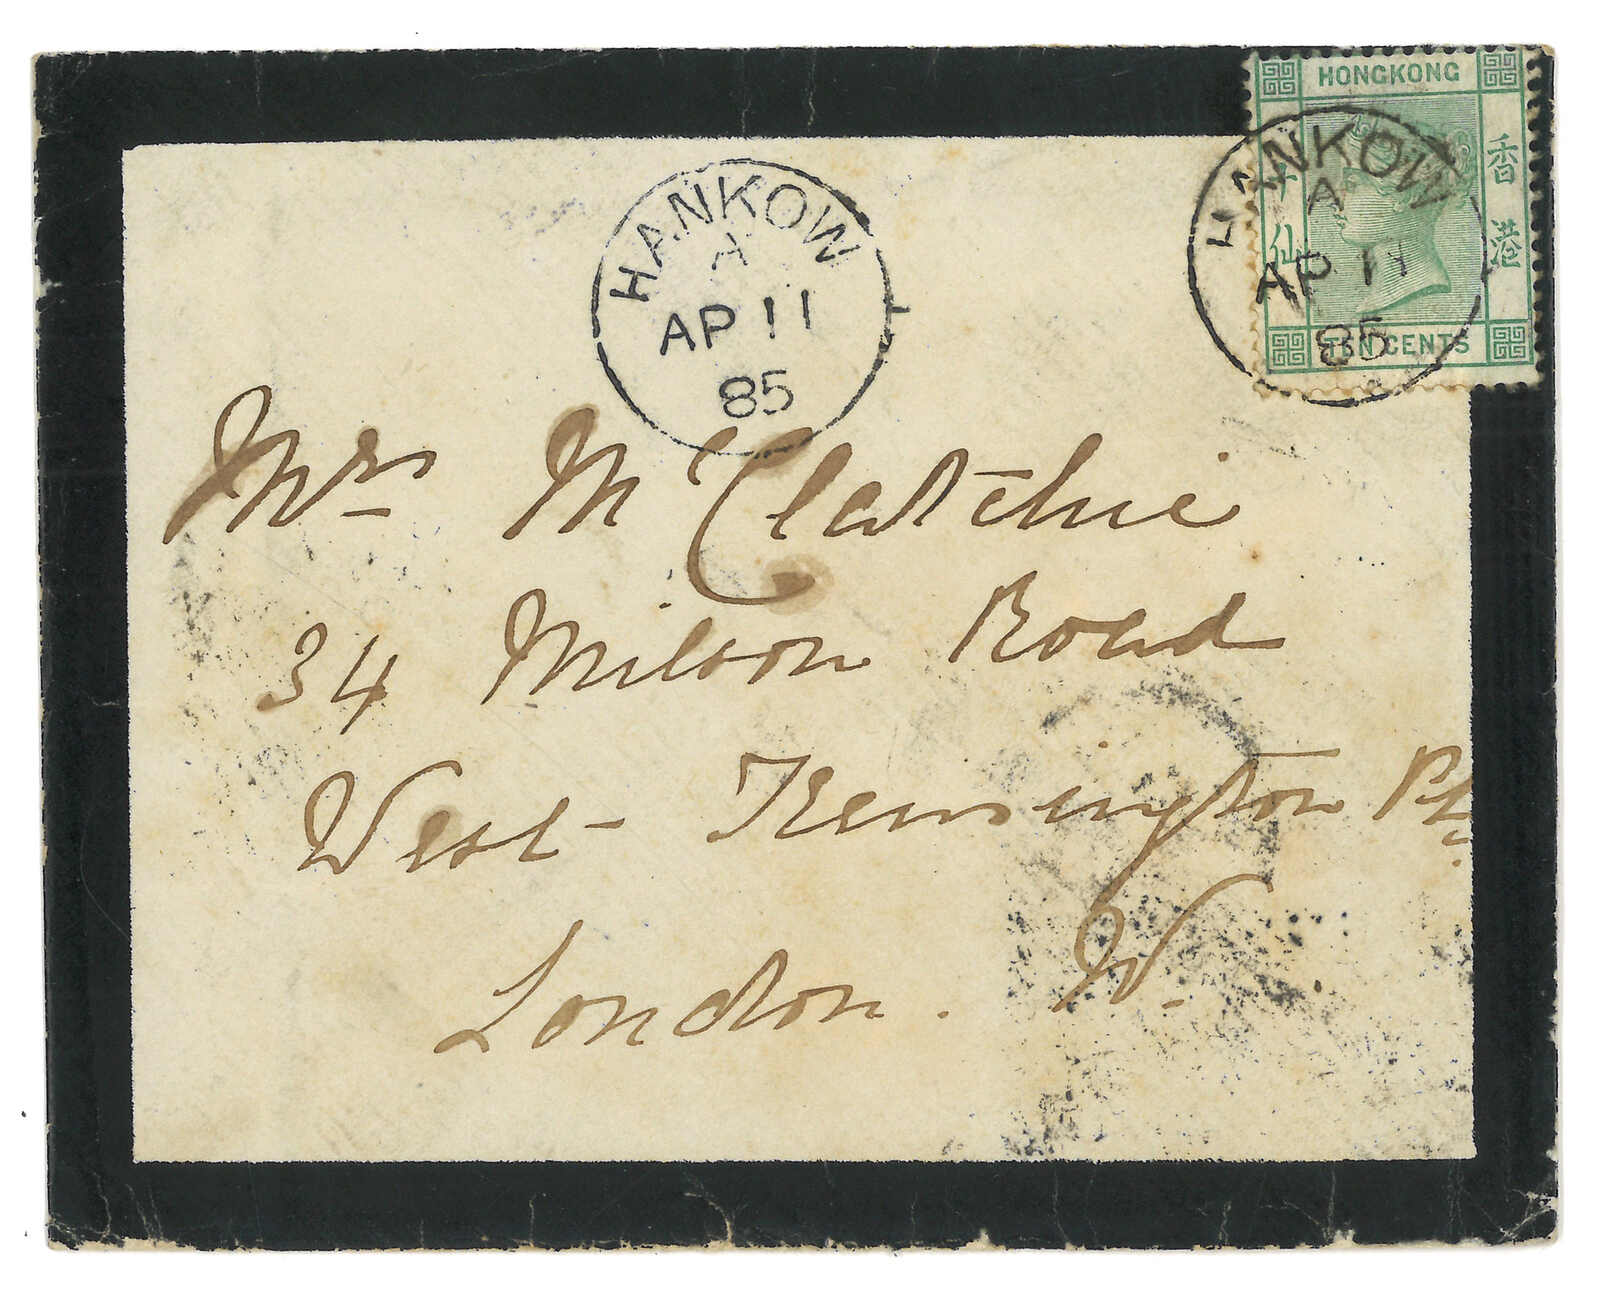 HONGKONG
香港
仙
TEN CENTS
HANKOW
A
AP 11
85
HANKOW
A
AP 11
85
Mrs McClatchie
34 Milson Road
West Kensington Pk.
London. W.